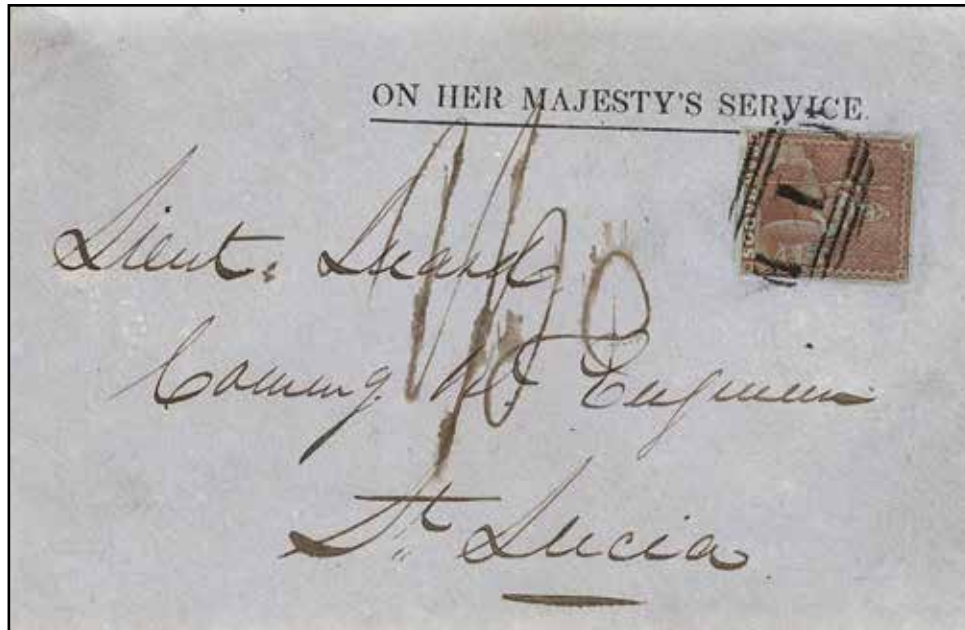 ON HER MAJESTY'S SERVICE.
1
Lieut. Luard
Comang. Rl. Engineer
St. Lucia